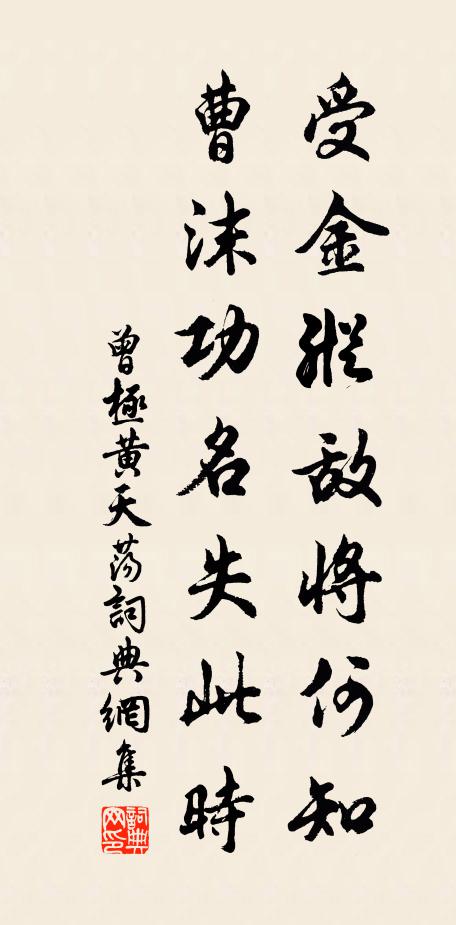 受金縱敌將何知
曹沫功名失此時
曾極黄天荡詞典網集
詞典网印